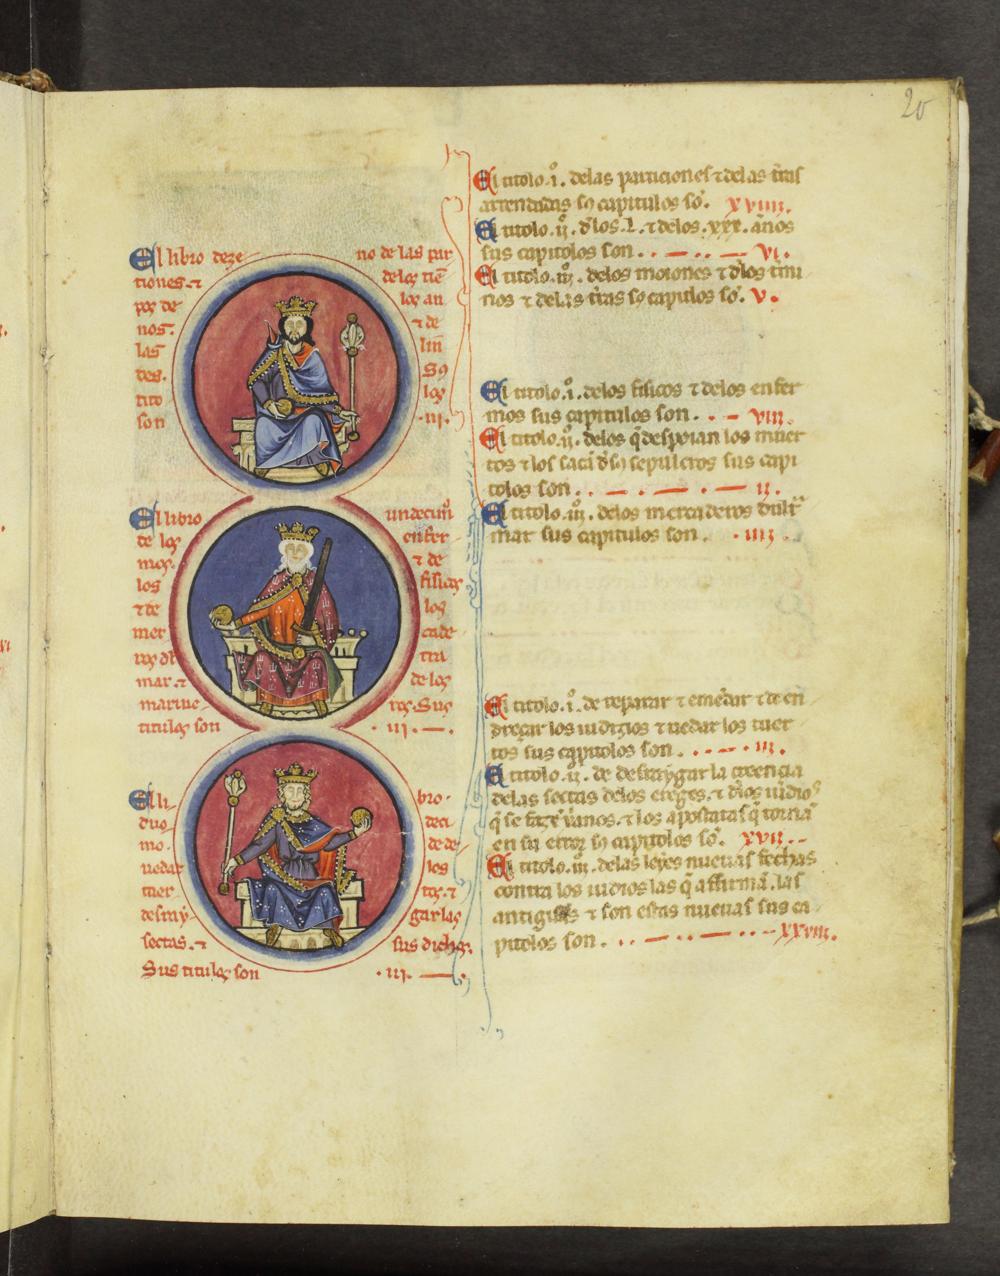 20
El libro deze no de las par
tiones ⁊ de los tiē
pos de los an
nos ⁊ de
las lin
des. Sꝯ
tito los
son ·iii·
El libro undecimº
de los enfer
mos ⁊ de
los fisicos
⁊ de los
mer cade
ros d̄l tra
mar ⁊ de los
titulos son ·iii·
El li bro
duo deci
mo de de
uedar los
tuer tos ⁊
destruy gar las
sectas ⁊ sus dichos
Sus titulos son ·iii·
El titolo .i. delas particiones ⁊ delas t̄ras
arrendadas sꝯ capitulos sō. xviiii.
El titolo .ii. d̓los .L. ⁊ delos .xxx. an̄os
sus capitolos son . . vi.
El titolo .iii. delos moiones ⁊ d̓los t̓mi
nos ⁊ delas t̄ras sꝯ capitulos sō. v.
El titolo .i. delos fisicos ⁊ delos enfer
mos sus capitulos son . . viii.
El titolo .ii. delos q̄ despoian los muer
tos ⁊ los sacā d̓ sꝯ sepulcros sus capi
tolos son . . ii.
El titolo .iii. delos mercaderos d̓ultra
mar sus capitulos son . iiii.
El titolo .i. de reparar ⁊ emēdar ⁊ de en
dreçar los iudizios ⁊ uedar los tuer
tos sus capitolos son . . iii.
El titolo .ii. de destruygar la creencia
delas sectas delos ereges ⁊ d̓los iudios
q̄ se fazē ⁊ los apostatas q̄ tornā
en su error sꝯ capitolos sō. xvii.
El titolo .iii. delas leyes nueuas fechas
contra los iudios las q̄ affirmā las
antiguas ⁊ son estas nueuas sus ca
pitolos son . . xxviii.